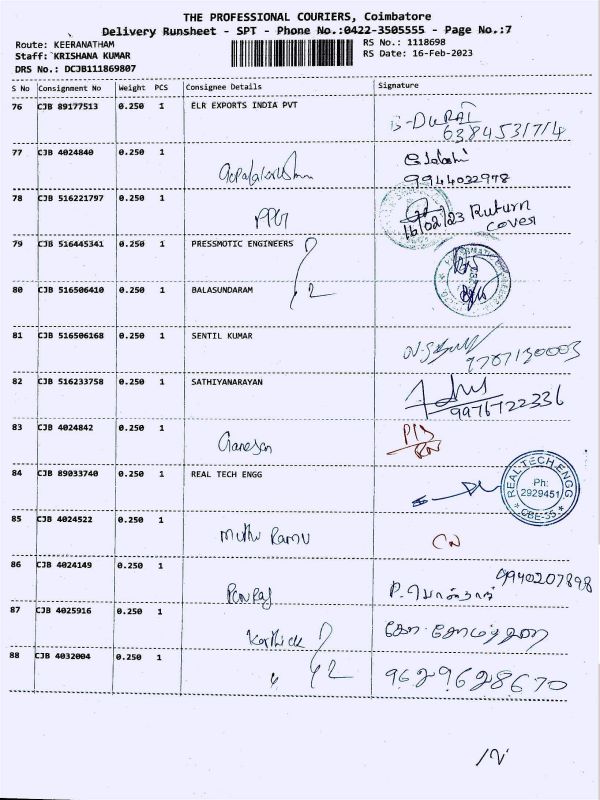 THE PROFESSIONAL COURIERS, Coimbatore
Delivery Runsheet - SPT - Phone No.:0422-3505555 - Page No.:7
Route: KEERANATHAM
RS No.: 1118698
Staff: KRISHANA KUMAR
RS Date: 16-Feb-2023
DRS No.: DCJB111869807
S No Consignment No Weight PCS Consignee Details Signature
76 CJB 89177513 0.250 1 ELR EXPORTS INDIA PVT
6384531714
77 CJB 4024840 0.250 1
9944022978
78 CJB 516221797 0.250 1 PPG
16/02/23 Ruturn
cover
79 CJB 516445341 0.250 1 PRESSMOTIC ENGINEERS
80 CJB 516506410 0.250 1 BALASUNDARAM
81 CJB 516506168 0.250 1 SENTIL KUMAR
82 CJB 516233758 0.250 1 SATHIYANARAYAN
9976722336
83 CJB 4024842 0.250 1 Ganesan
84 CJB 89033740 0.250 1 REAL TECH ENGG
REAL TECH ENGG
Ph:
2929451
CBE-35
85 CJB 4024522 0.250 1 Muthu Ramu
CN
86 CJB 4024149 0.250 1
9940207898
87 CJB 4025916 0.250 1 Karthick
88 CJB 4032004 0.250 1 "
9629628670